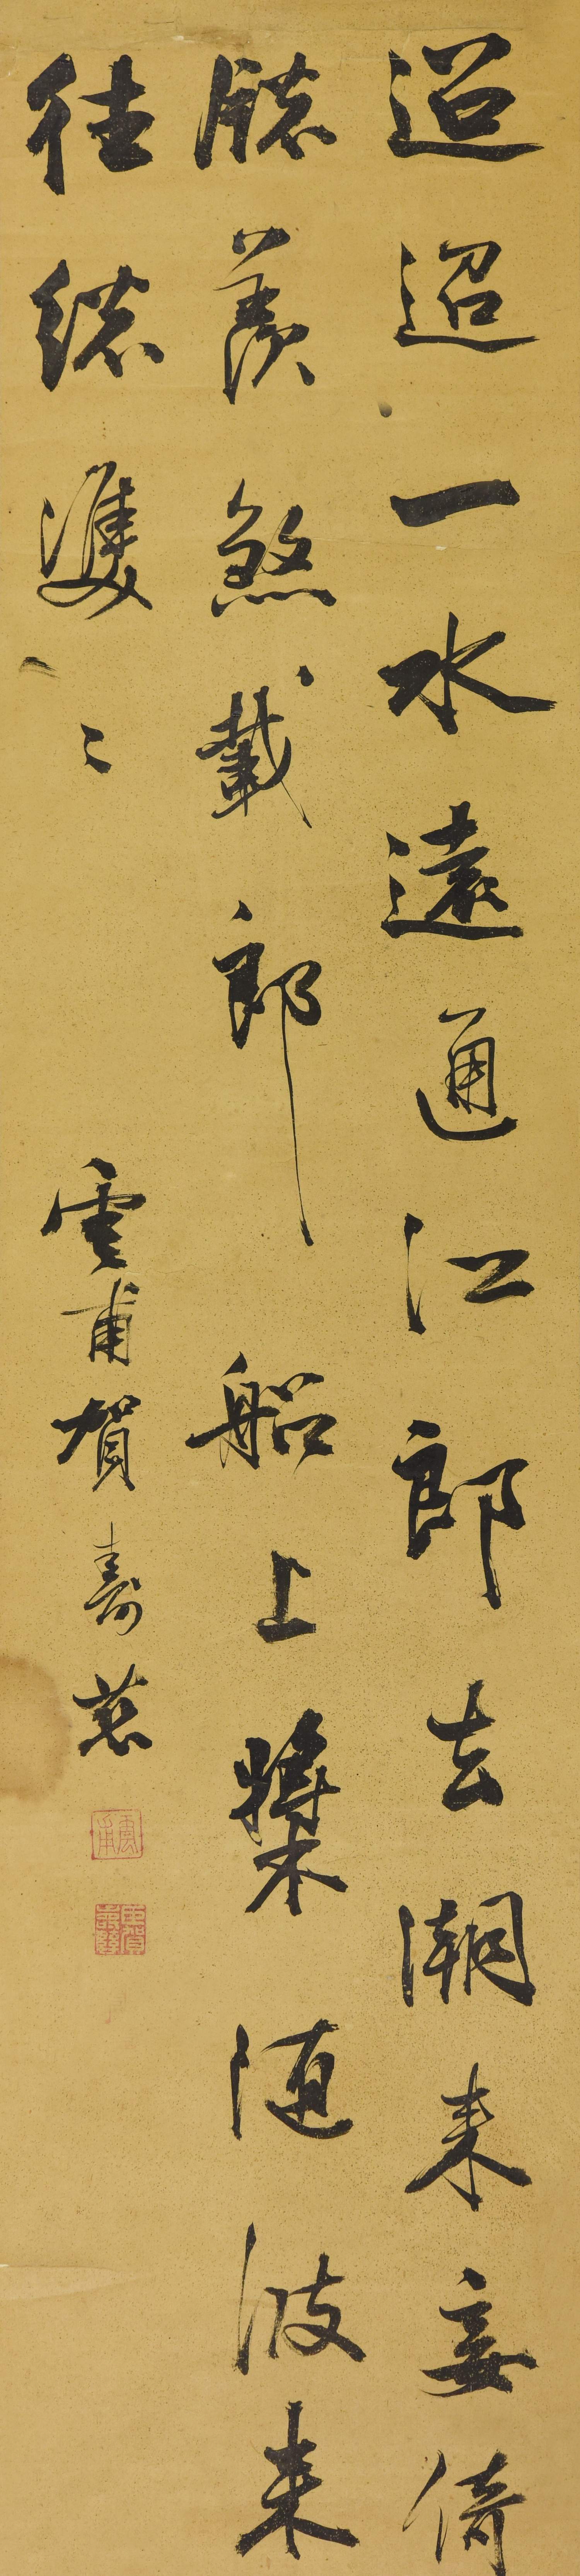 迢迢一水遠通江郎去潮来妾倚
牕羨煞載郎船上槳随波来
往總雙〻
雲甫賀壽慈
雲甫
臣賀壽慈